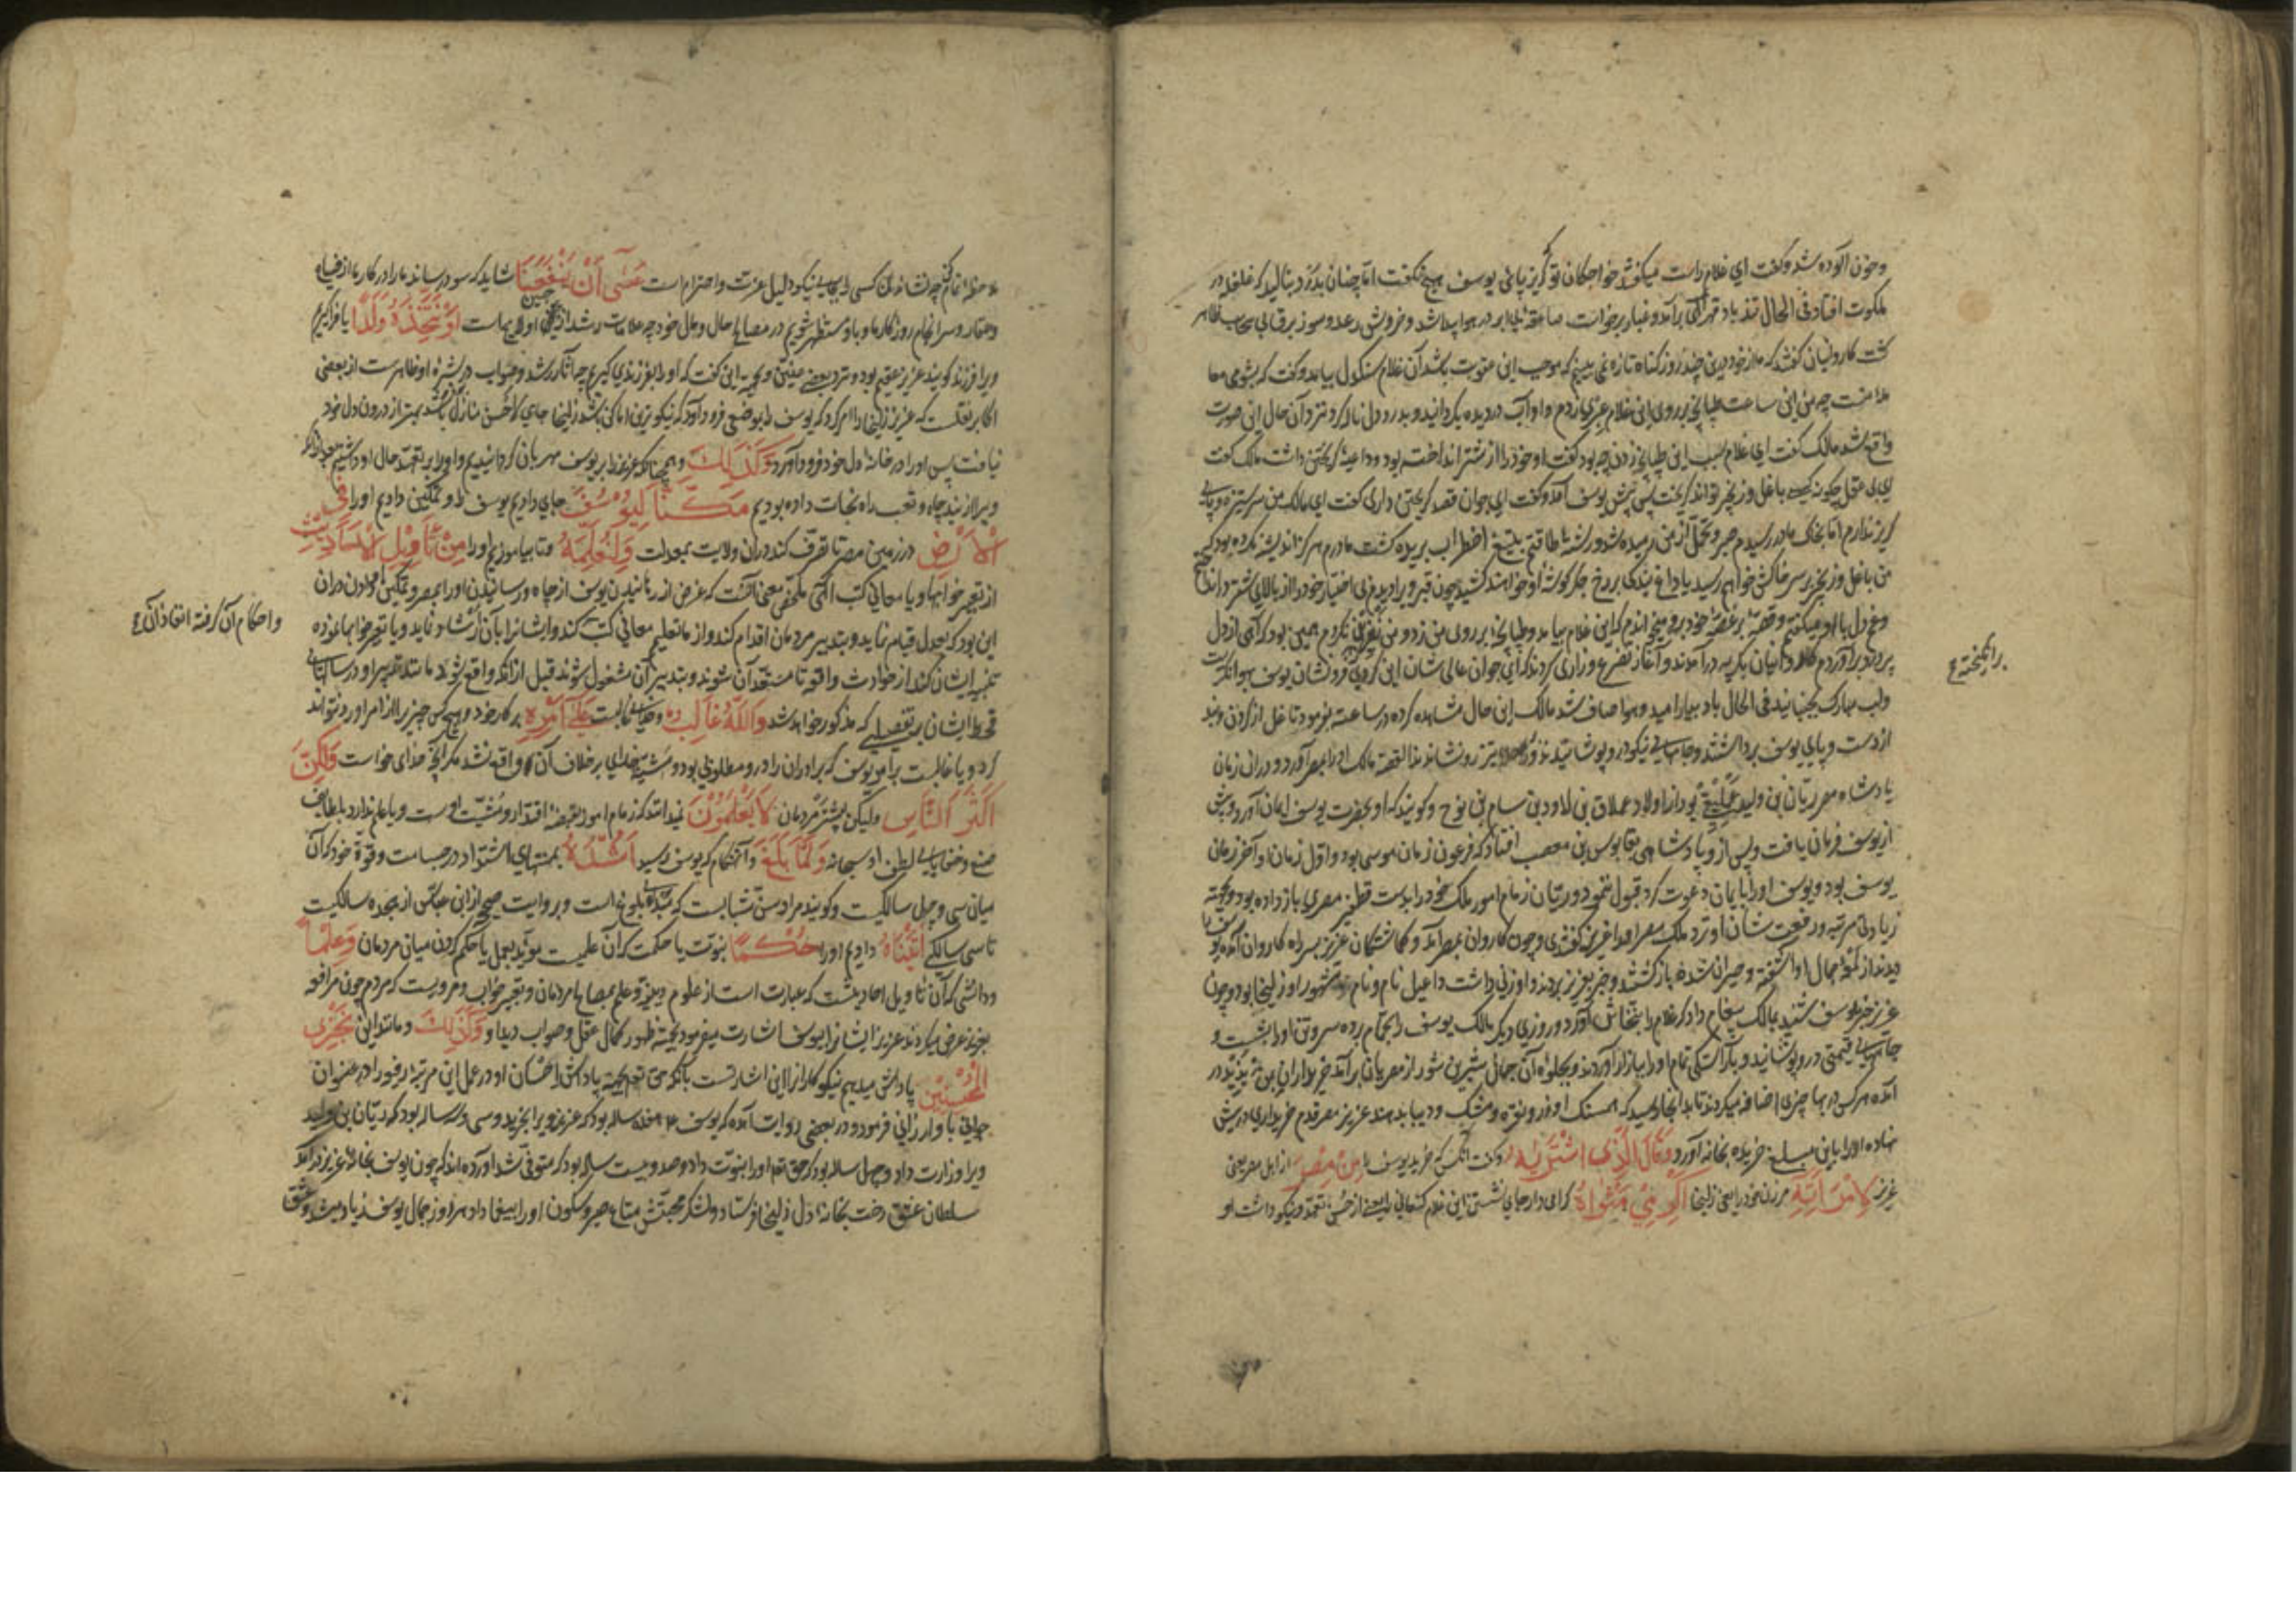 وخون آلوده شد وگفت ای غلام راست میگفتند خواجکان تو که گریز پائی یوسف هیچ نگفت اما چنان بدرد بنالید که غلغله در
ملکوت افتاد فی الحال تند باد قهر الهی برآمد وغبار برخاست صاعقه ابر در هوا پیدا شد وخروش رعد وسوز برق از سحاب ظاهر
گشت کاروانیان گفتند که ما از خود درین چند روز گناه تازه نمی بینیم که موجب این عقوبت باشد آن غلام سنگدل بیامد وگفت که بشومی
منست چه من این ساعت طپانچه بر روی این غلام عبری زدم واو آب در دیده بگردانید وبدرد دل ناله کرد ونزد آن حال این صورت
واقع شد مالک گفت ای غلام سبب این طپانچه زدن چه بود گفت او خود را از شتر انداخته بود وداعیه گریختن داشت مالک گفت
ای بی عقل چگونه کسی با غل وزنجیر تواند گریخت پس پیش یوسف آمد وگفت ای جوان قصد گریختن داری گفت ای مالک من سر ستیزه وپای
گریز ندارم اما بخاک مادر رسیدم صبر وتحمل از من رمیده شد ورشته طاقتم بتیغ اضطراب بریده گشت مادرم هرگز اندیشه نکرده بود که
من با غل وزنجیر بر سر خاکش خواهم رسید یا داغ بندگی بر رخ جگر گوشه او خواهند کشید چون قبر ویرا دیدم بی اختیار خود را از بالای شتر در انداختم
وغم دل با او میگفتم وقصه پر غصه خود برو میخواندم که این غلام بیامد وطپانچه بر روی من زد ومن نفرین نکردم همین بود که آهی از دل
پر درد برآوردم کاروانیان بگریه درآمدند وآغاز تضرع وزاری کردند که ای جوان عالی شان این گرد فرونشان یوسف بهوا نگریست
ولب مبارک بجنبانید فی الحال باد بیارامید وهوا صاف شد مالک این حال مشاهده کرده در ساعت بفرمود تا غل از گردن وبند
از دست وپای یوسف برداشتند وجامهای نیکو درو پوشانیدند و نشاندند القصه مالک او را بمصر آورد ودر آن زمان
پادشاه مصر ریان بن ولید عملیقی بود از اولاد عملاق بن لاود بن سام بن نوح وگویند که او بحضرت یوسف ایمان آورد وپیش
از یوسف فرمان یافت وپس از وپادشاهی بقابوس بن مصعب افتاد که فرعون زمان موسی بود واول زمان او آخر زمان
یوسف بود ویوسف او را بایمان دعوت کرد قبول ننمود وریان زمام امور ملک خود را بدست قطفیر مصری باز داده بود وبجهة
زیادتی مرتبه ورفعت شان او نزد ملک مصر او را عزیز گفتندی وچون کاروان بمصر آمد وگماشتگان عزیز بسر راه کاروان آمده یوسف را
دیدند از لمعه جمال او آشفته وحیران شده بازگشتند وخبر بعزیز بردند واو زنی داشت راعیل نام ونام مشهور او زلیخا بود وچون
عزیز خبر یوسف شنید بمالک پیغام داد که غلام را بنخاس آورد روزی دیگر مالک یوسف را بحمام برده سر وتن او را بشست و
جامهای قیمتی درو پوشانید وبآراستگی تمام او را ببازار آوردند وبجلوه آن جمال شیرین شور از مصریان برآمد خریداران
آمده هر کس در بها چیزی اضافه میکردند تا بدانجا رسید که همسنگ او زر ونقره ومشک ودیبا بدهند عزیز مصر قدم خریداری در پیش
نهاده او را باین مبلغ خریده بخانه آورد وَقَالَ الَّذِی اشْتَرٰیهُ وگفت آنکس که خرید یوسف را مِنْ مِصْرَ از اهل مصر یعنی
عزیز لِامْرَاَتِهٖ مر زن خود را یعنی زلیخا اَکْرِمِی مَثْوٰاهُ گرامی دار جای نشستن این غلام کنعانی را یعنی از حسن تعهد ونیکو داشت او
را انگیخته ع
چه نشاندن کسی را بجای نیکو دلیل عزت واحترام است عَسٰی اَنْ یَنْفَعَنَا شاید که سود رساند ما را در کار ما از ضیاع
وعقار وسرانجام روزگار ما وباو مستظهر شویم در مصالح حال ومال خود چه علامات رشد از جبین او لایح است اَوْ نَتَّخِذَهُ وَلَدًا یا فراگیریم
ویرا فرزند گویند عزیز عقیم بود ونزد بعضی عنین وبجهة این گفت که او را بفرزندی گیریم چه آثار رشد وصواب در بشره او ظاهر است از بعضی
اکابر نقلست که عزیز زلیخا را امر کرد که یوسف را بموضعی فرود آورد که نیکوترین اماکن باشد زلیخا جای که احسن منازل باشد بهتر از درون دل خود
نیافت پس او را در خانه دل خود فرود آورد وَکَذٰلِکَ وهمچنانکه عزیز را بر یوسف مهربان گردانیدیم واو را بر تعهد حال او داشتیم بعد از آنکه
ویرا از بند چاه وتعب راه نجات داده بودیم مَکَّنَّا لِیُوسُفَ جای دادیم یوسف را وتمکین دادیم او را فِی
الْاَرْضِ در زمین مصر تا تصرف کند در آن ولایت بمعدلت وَلِنُعَلِّمَهُ وتا بیاموزیم او را مِنْ تَأْوِیلِ الْاَحَادِیثِ
از تعبیر خوابها ویا معانی کتب الهی ملخص معنی آنست که غرض از رهانیدن یوسف از چاه ورسانیدن او را بمصر وتمکین او دادن در آن
این بود که بعدل قیام نماید وبتدبیر مردمان اقدام کند واز ما تعلیم معانی کتب کند وایشانرا بآن ارشاد نماید وبا تعبیر خوابها نموده
تنبیه ایشان کند از حوادث واقعه تا مستعد آن شوند وبتدبیر آن مشغول شوند قبل از آنکه واقع شود مانند تدبیر او در سالهای
قحط ایشان بر تفصیلی که مذکور خواهد شد وَاللّٰهُ غَالِبٌ وخدای غالبست عَلٰی اَمْرِهٖ بر کار خود وهیچکس چیزیرا از امر او رد نتواند
کرد ویا غالبست بر امر یوسف که برادران را درو مطلوبی بود ومشیت خدای بر خلاف آن واقع نشد مگر آنچه خدای خواست وَلٰکِنَّ
اَکْثَرَ النَّاسِ ولیکن بیشتر مردمان لَا یَعْلَمُونَ نمیدانند که زمام امور بقبضه اقتدار ومشیت اوست ویا علم ندارند بلطایف
صنع وخفایای لطف او سبحانه وَلَمَّا بَلَغَ وآنهنگام که یوسف رسید اَشُدَّهُ بمنتهای اشتداد در جسامت وقوة خود که آن
میان سی وچهل سالگیست وگویند مراد سن شبابست که مبدء بلوغ است وبروایت صحیح از ابن عباس از هجده سالگیست
تا سی سالگی اٰتَیْنَاهُ دادیم او را حُکْمًا نبوت یا حکمت که آن علمیست مؤید بعمل یا حکم کردن میان مردمان وَعِلْمًا
ودانشی که آن تاویل احادیثست که عبارت است از علوم دینیه وعلم بمصالح مردمان وتعبیر خواب ومرویست که مردم چون مرافعه
بعزیز عرض میکردند عزیز ایشانرا بیوسف اشارت میفرمود بجهة ظهور کمال عقل وصواب دید او وَکَذٰلِکَ ومانند این نَجْزِی
الْمُحْسِنِینَ پاداش میدهیم نیکوکارانرا این اشارتست بآنکه حق تعالی بجهة پاداش احسان او در عمل این مرتبه رفیع را در عنفوان
جوانی باو ارزانی فرمود ودر بعضی روایات آمده که یوسف هفده ساله بود که عزیز ویرا بخرید وسی وسه ساله بود که ریان بن ولید
ویرا وزارت داد وچهل ساله بود که حق تعالی او را نبوت داد وصد وبیست ساله بود که متوفی شد آورده اند که چون یوسف بخانه عزیز درآمد
سلطان عشق رخت بخانه دل زلیخا فرستاد ولشکر محبتش متاع صبر وسکون او را بیغما داد هر روز جمال یوسف زیاده میشد وعشق
واحکام آن گرفته انفاذ آن ع